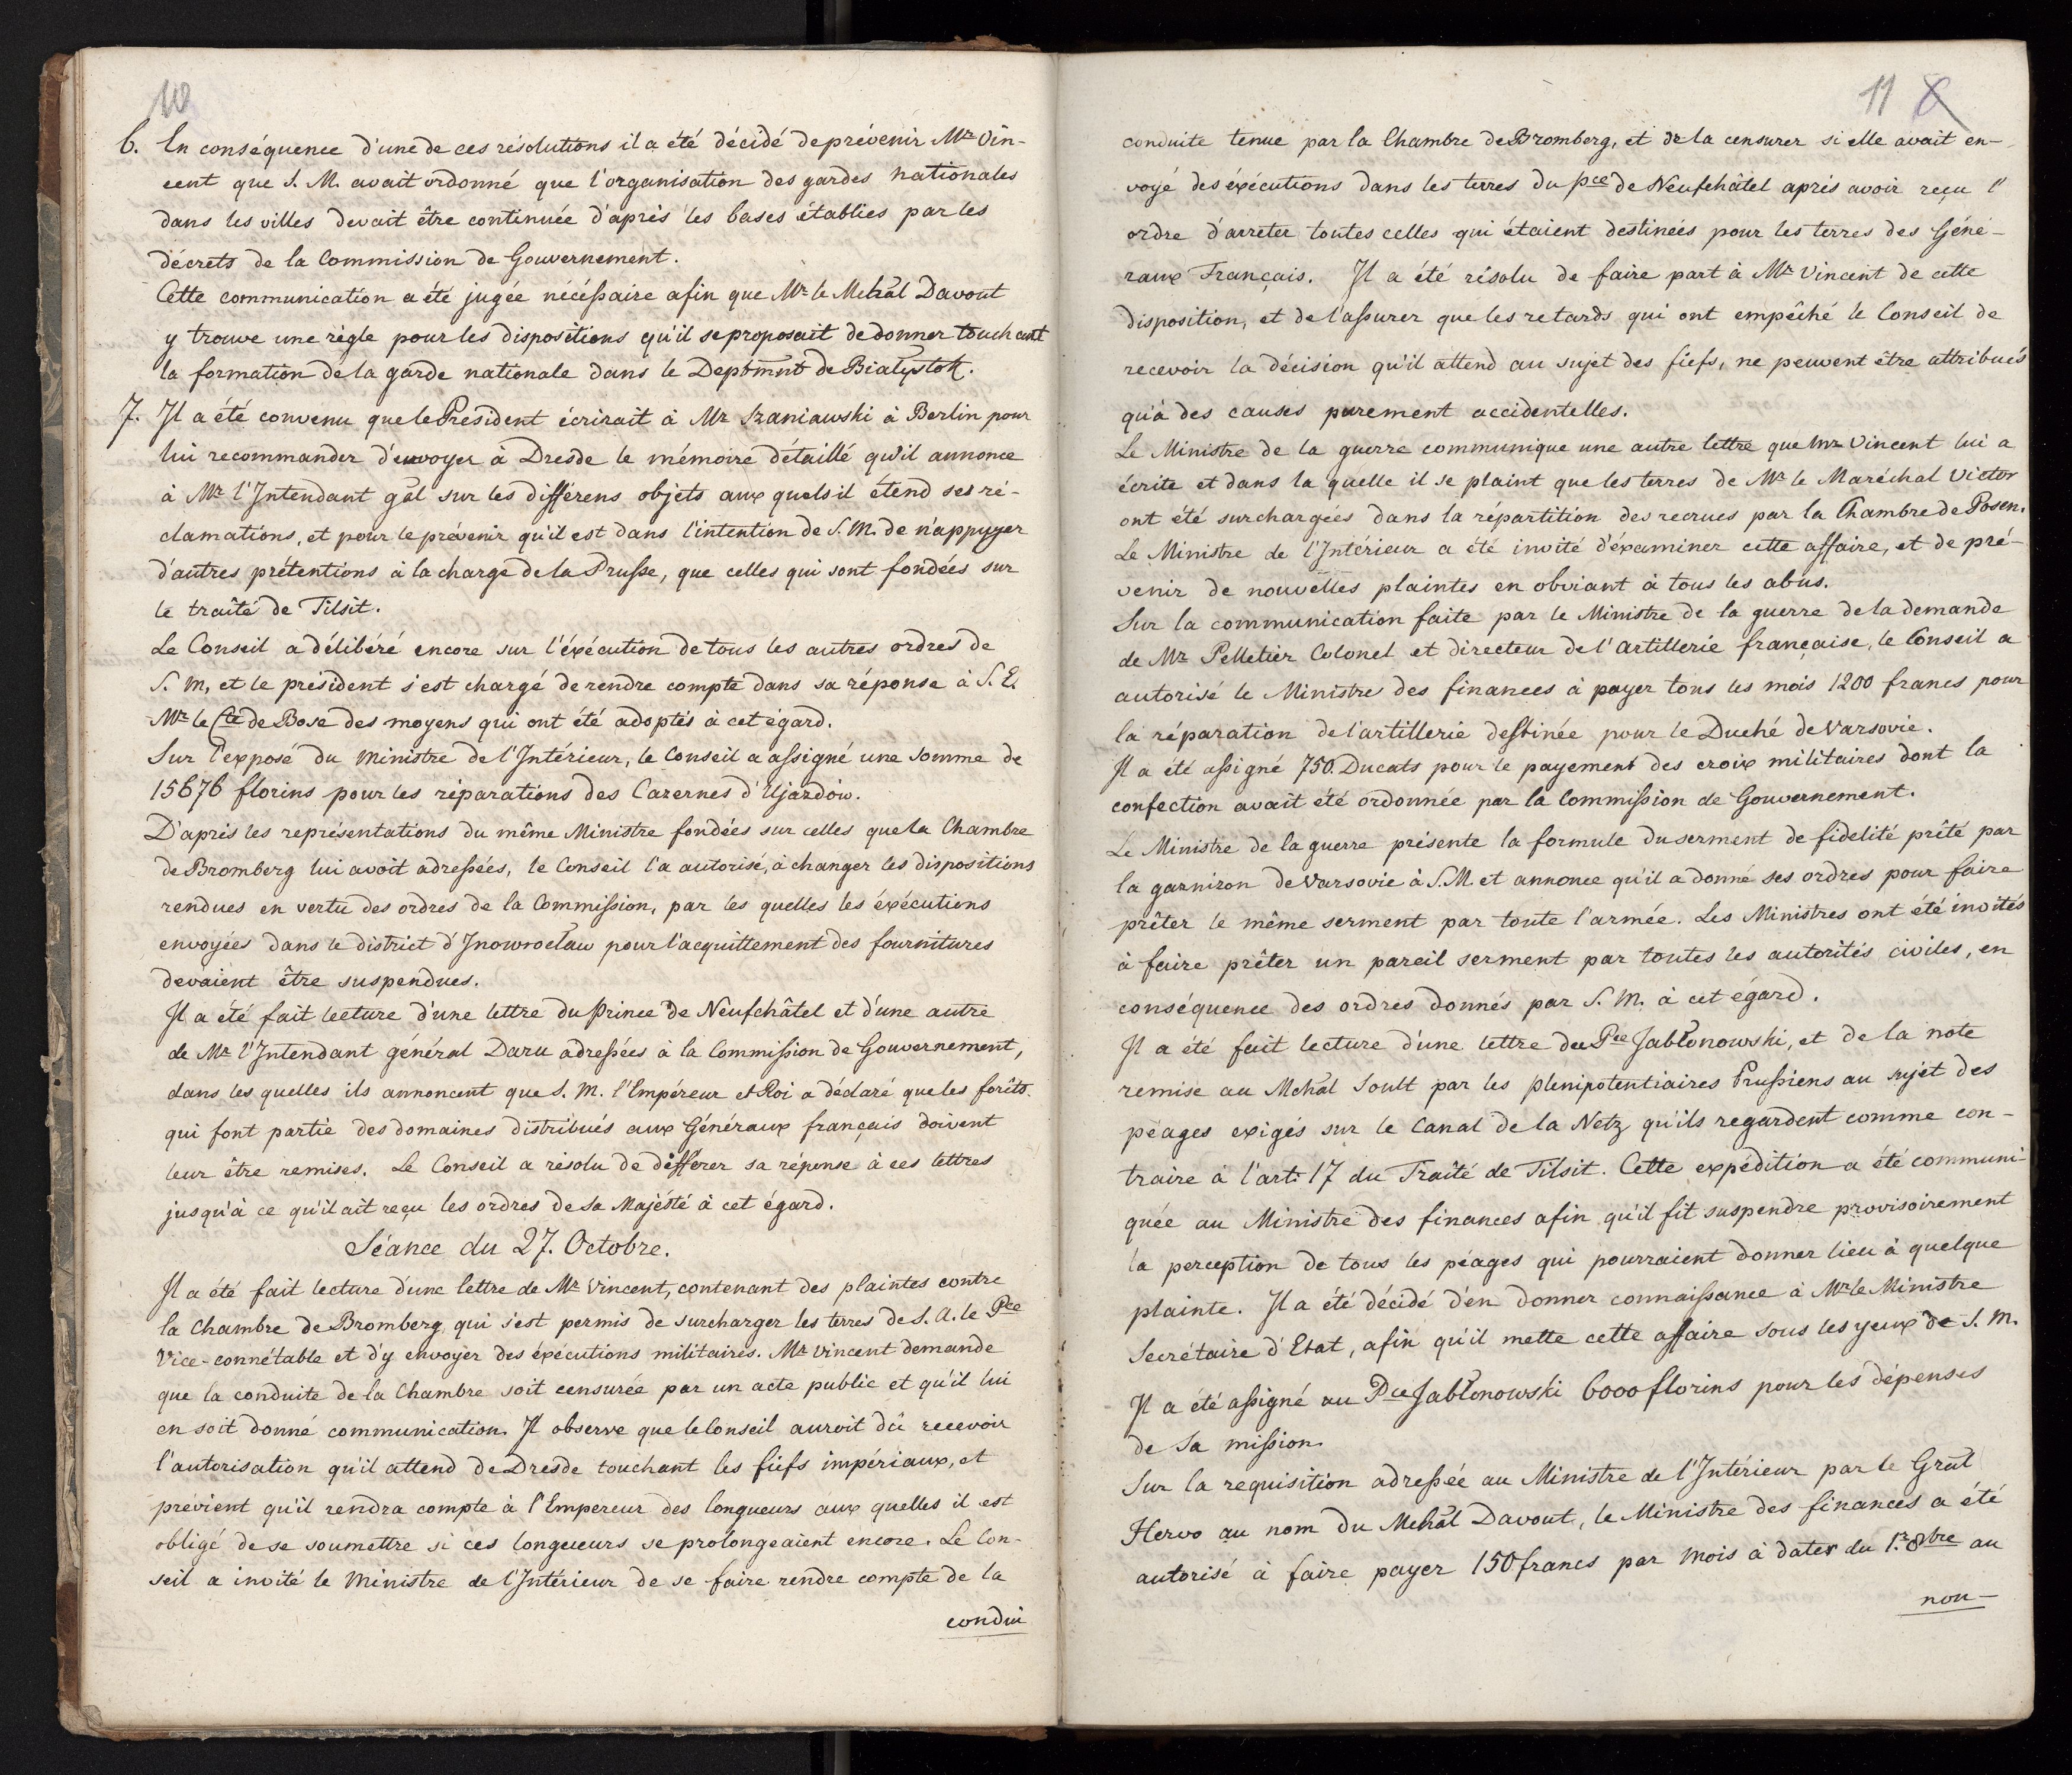 10
6. En conséquence d'une de ces résolutions il a été décidé de prévenir Mr Vin-
cent que S. M. avait ordonné que l'organisation des gardes nationales
dans les villes devait être continuée d'après les bases établies par les
décrets de la Commission de Gouvernement.
Cette communication a été jugée nécéssaire afin que Mr le Mchal Davout
y trouve une règle pour les dispositions qu'il se proposait de donner touchant
la formation de la garde nationale dans le Depbmnt de Białystok.
7. Il a été convenu que le Président écrirait à Mr Szaniawski à Berlin pour
lui recommander d'envoyer à Dresde le mémoire détaillé qu'il annonce
à Mr l'Intendant gāl sur les différens objets aux quels il étend ses ré-
clamations, et pour le prévenir qu'il est dans l'intention de S. M. de n'appuyer
d'autres prétentions à la charge de la Prusse, que celles qui sont fondées sur
le traité de Tilsit.
Le Conseil a délibéré encore sur l'éxécution de tous les autres ordres de
S. M, et le président s'est chargé de rendre compte dans sa réponse à S. E.
Mr le Cte de Bose des moyens qui ont été adoptés à cet égard.
Sur l'exposé du Ministre de l'Intérieur, le Conseil a assigné une somme de
15676 florins pour les réparations des Cazernes d'Ujazdów.
D'après les représentations du même Ministre fondées sur celles que la Chambre
de Bromberg lui avoit adressées, le Conseil l'a autorisé, à changer les dispositions
rendues en vertu des ordres de la Commission, par les quelles les éxécutions
envoyées dans le district d'Inowrocław pour l'acquittement des fournitures
devaient être suspendues.
Il a été fait lecture d'une lettre du Prince de Neufchâtel et d'une autre
de Mr l'Intendant général Daru adressées à la Commission de Gouvernement,
dans les quelles ils annoncent que S. M. l'Empéreur et Roi a déclaré que les forêts
qui font partie des domaines distribués aux Généraux français doivent
leur être remises. Le Conseil a résolu de différer sa réponse à ces lettres
jusqu'à ce qu'il ait reçu les ordres de Sa Majésté à cet égard.
Séance du 27. Octobre.
Il a été fait lecture d'une lettre de Mr Vincent, contenant des plaintes contre
la Chambre de Bromberg qui s'est permis de surcharger les terres de S. A. le Pce
Vice-connétable et d'y envoyer des éxécutions militaires. Mr Vincent demande
que la conduite de la Chambre soit censurée par un acte public et qu'il lui
en soit donné communication. Il observe que le Conseil auroit dû recevoir
l'autorisation qu'il attend de Dresde touchant les fiefs impériaux, et
prévient qu'il rendra compte à l'Empereur des longueurs aux quelles il est
obligé de se soumettre si ces longueurs se prolongeaient encore. Le Con-
seil a invité le Ministre de l'Intérieur de se faire rendre compte de la
condui
11 8
conduite tenue par la Chambre de Bromberg, et de la censurer si elle avait en-
voyé des éxécutions dans les terres du Pce de Neufchâtel après avoir reçu l'
ordre d'arreter toutes celles qui étaient destinées pour les terres des Géné-
raux Français. Il a été résolu de faire part à Mr Vincent de cette
disposition, et de l'assurer que les retards qui ont empêché le Conseil de
recevoir la décision qu'il attend au sujet des fiefs, ne peuvent être attribués
qu'à des causes purement accidentelles.
Le Ministre de la guerre communique une autre lettre que Mr Vincent lui a
écrite et dans la quelle il se plaint que les terres de Mr le Maréchal Victor
ont été surchargées dans la répartition des recrues par la Chambre de Posen.
Le Ministre de l'Intérieur a été invité d'éxaminer cette affaire, et de pré-
venir de nouvelles plaintes en obviant à tous les abus.
Sur la communication faite par le Ministre de la guerre de la demande
de Mr Pelletier Colonel et directeur de l'artillerie française, le Conseil a
autorisé le Ministre des finances à payer tous les mois 1200 francs pour
la réparation de l'artillerie destinée pour le Duché de Varsovie.
Il a été assigné 750. Ducats pour le payement des croix militaires dont la
confection avait été ordonnée par la Commission de Gouvernement.
Le Ministre de la guerre présente la formule du serment de fidelité prêté par
la garnizon de Varsovie à S. M. et annonce qu'il a donné ses ordres pour faire
prêter le même serment par toute l'armée. Les Ministres ont été invités
à faire prêter un pareil serment par toutes les autorités civiles, en
conséquence des ordres donnés par S. M. à cet égard.
Il a été fait lecture d'une lettre du Pce Jabłonowski, et de la note
remise au Mchal Soult par les plenipotentiaires Prussiens au sujet des
péages exigés sur le Canal de la Netz qu'ils regardent comme con-
traire à l'art. 17 du Traité de Tilsit. Cette expédition a été communi-
quée au Ministre des finances afin qu'il fit suspendre provisoirement
la perception de tous les péages qui pourraient donner lieu à quelque
plainte. Il a été décidé d'en donner connaissance à Mr le Ministre
Secrétaire d'Etat, afin qu'il mette cette affaire sous les yeux de S. M.
Il a été assigné au Pce Jabłonowski 6000 florins pour les dépenses
de Sa mission.
Sur la requisition adressée au Ministre de l'Intérieur par le Gral
Hervo au nom du Mchal Davout, le Ministre des finances a été
autorisé à faire payer 150 francs par mois à dater du 1.r 8bre au
nou-